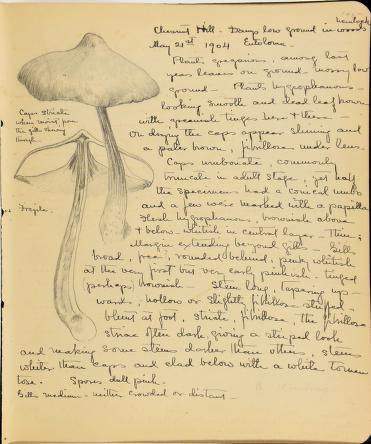 hemlock
Chestnut Hill - Damp low ground in woods
May 21st 1904 Entoloma.
Plants gregarious, among last
years leaves on ground - mossy low
ground - Plants hygrophanous -
looking smooth and dead leaf brown
with greenish tinges here & there -
On drying the caps appear shining and
a paler brown, fibrillose under lens.
Caps umbonate, commonly
truncate in adult stage, yet half
the specimens had a conical umbo
and a few were marked with a papilla
Flesh hygrophanous, brownish above
& below - whitish in central layer - Thin;
Margin extending beyond gills - Gills
broad, free, rounded behind, pinky whitish
at the very first but very early pinkish - tinged
(perhaps) brownish - Stem long, tapering up-
wards, hollow or slightly fibrillose stuffed -
blunt at foot, striate, fibrillose, the fibrillose
striae often dark, giving a striped look
and making some stems darker than others, stems
whiter than caps and clad below with a white tomen
tose. Spores dull pink.
Gills medium - neither crowded or distant -
Caps striate
when moist, from
the gills showing
through.
Fragile.